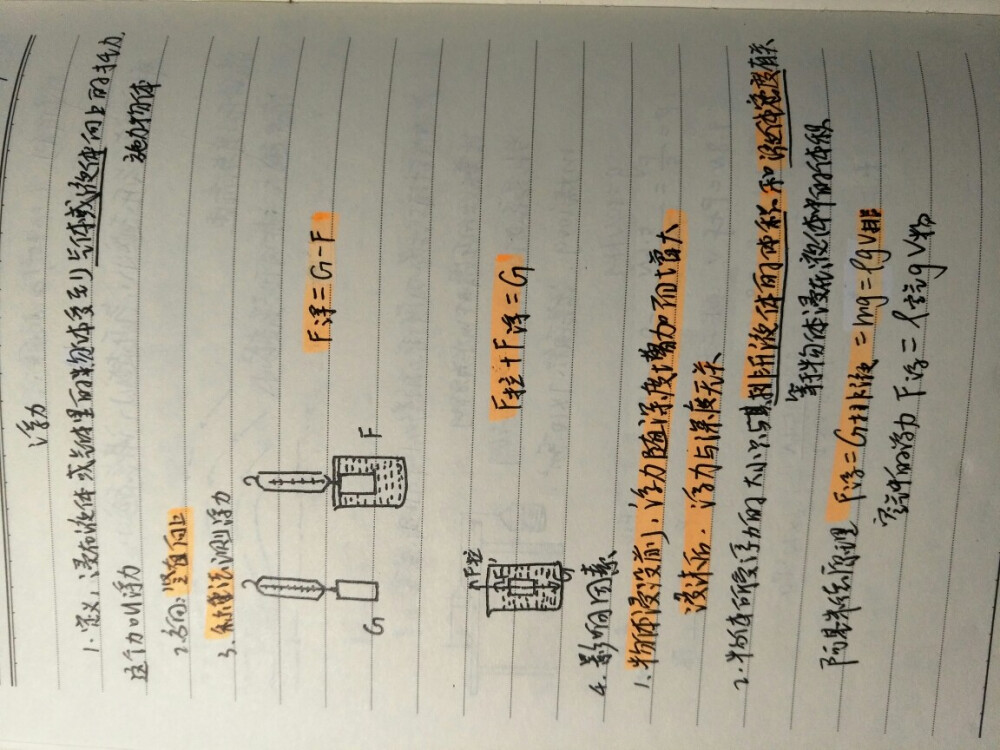 浮力
1.定义:浸在液体或气体里的物体受到气体或液体向上的托力.
这个力叫浮力
施力物体
2.方向:竖直向上
3.称重法测浮力
F浮=G-F
G
F
F拉+F浮=G
F拉
4.影响因素
1.物体浸没前,浮力随深度增加而增大
浸没后,浮力与深度无关
2.物体所受浮力的大小只与其排开液体的体积和液体密度有关
等于物体浸在液体中的体积
阿基米德原理 F浮=G排液=mg=ρgV排
空气中的浮力 F浮=ρ空气gV物